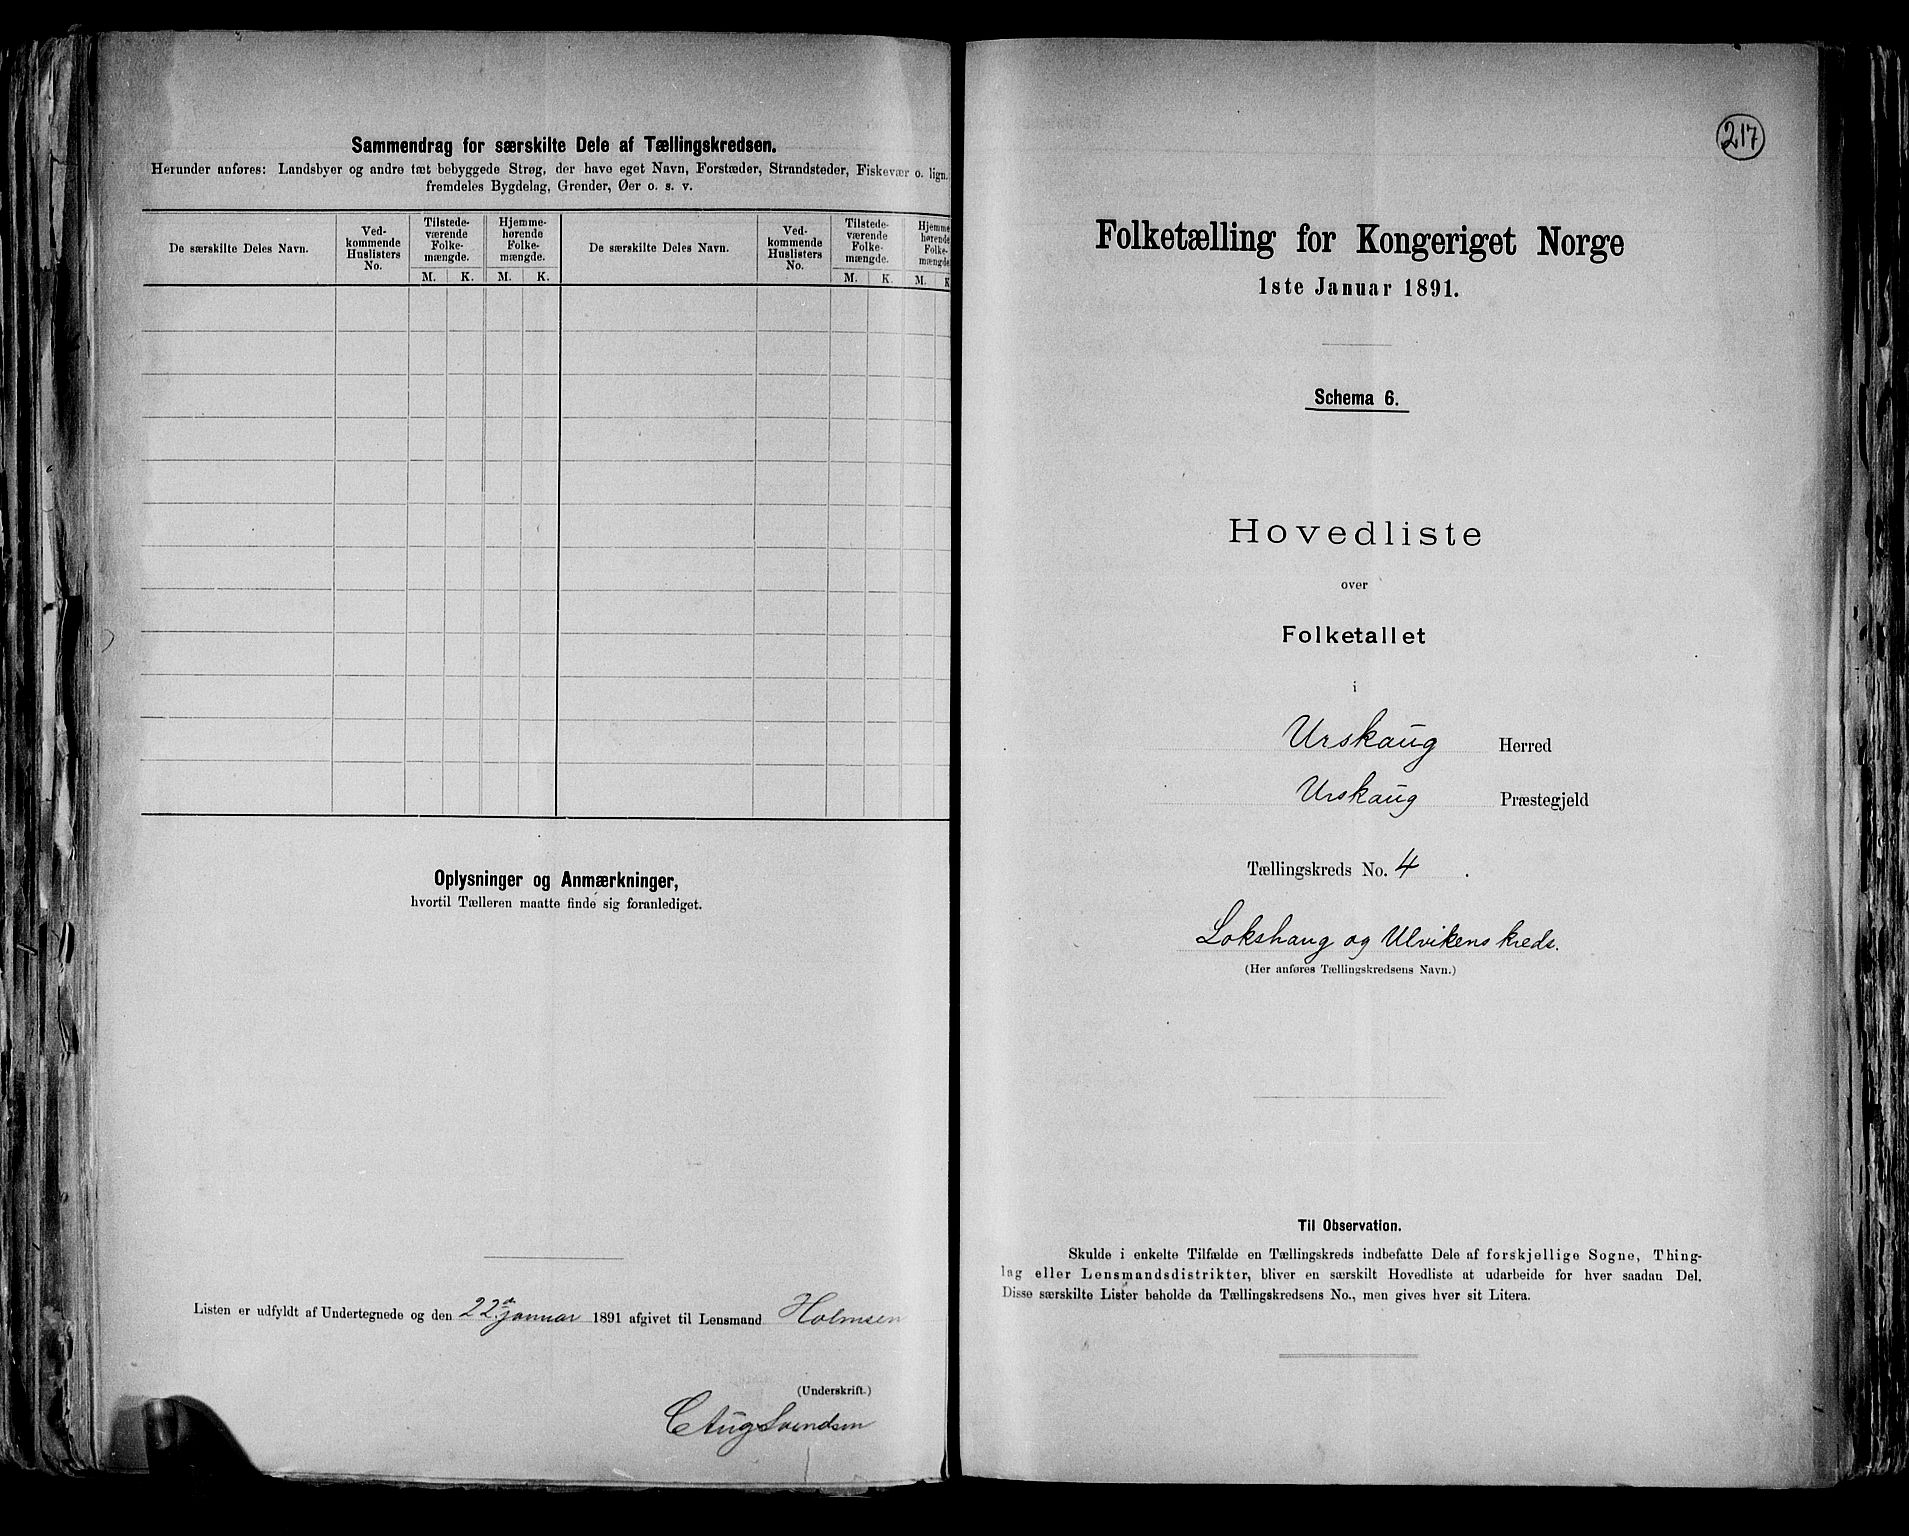 Sammendrag for særskilte Dele af Tællingskredsen.
Herunder anføres: Landsbyer og andre tæt bebyggede Strøg, der have eget Navn, Forstæder, Strandsteder, Fiskevær o. lign.
fremdeles Bygdelag, Grender, Øer o. s. v.
De særskilte Deles Navn.
Ved-
kommende
Huslisters
No.
Tilstede-
værende
Folke-
mængde.
M. K.
Hjemme-
hørende
Folke-
mængde.
M. K.
De særskilte Deles Navn.
Ved-
kommende
Huslisters
No.
Tilstede-
værende
Folke-
mængde.
M. K.
Hjemme
hørende
Folke-
mængde
M. K
Oplysninger og Anmærkninger,
hvortil Tælleren maatte finde sig foranlediget.
Listen er udfyldt af Undertegnede og den 22de januar 1891 afgivet til Lensmand Holmsen
(Underskrift.)
C Aug Svendsen
217
Folketælling for Kongeriget Norge
1ste Januar 1891.
Schema 6.
Hovedliste
over
Folketallet
i
Urskaug Herred
Urskaug Præstegjeld
Tællingskreds No. 4.
Lokshaug og Ulvikens kreds.
(Her anføres Tællingskredsens Navn.)
Til Observation.
Skulde i enkelte Tilfælde en Tællingskreds indbefatte Dele af forskjellige Sogne, Thing-
lag eller Lensmandsdistrikter, bliver en særskilt Hovedliste at udarbeide for hver saadan Del.
Disse særskilte Lister beholde da Tællingskredsens No., men gives hver sit Litera.